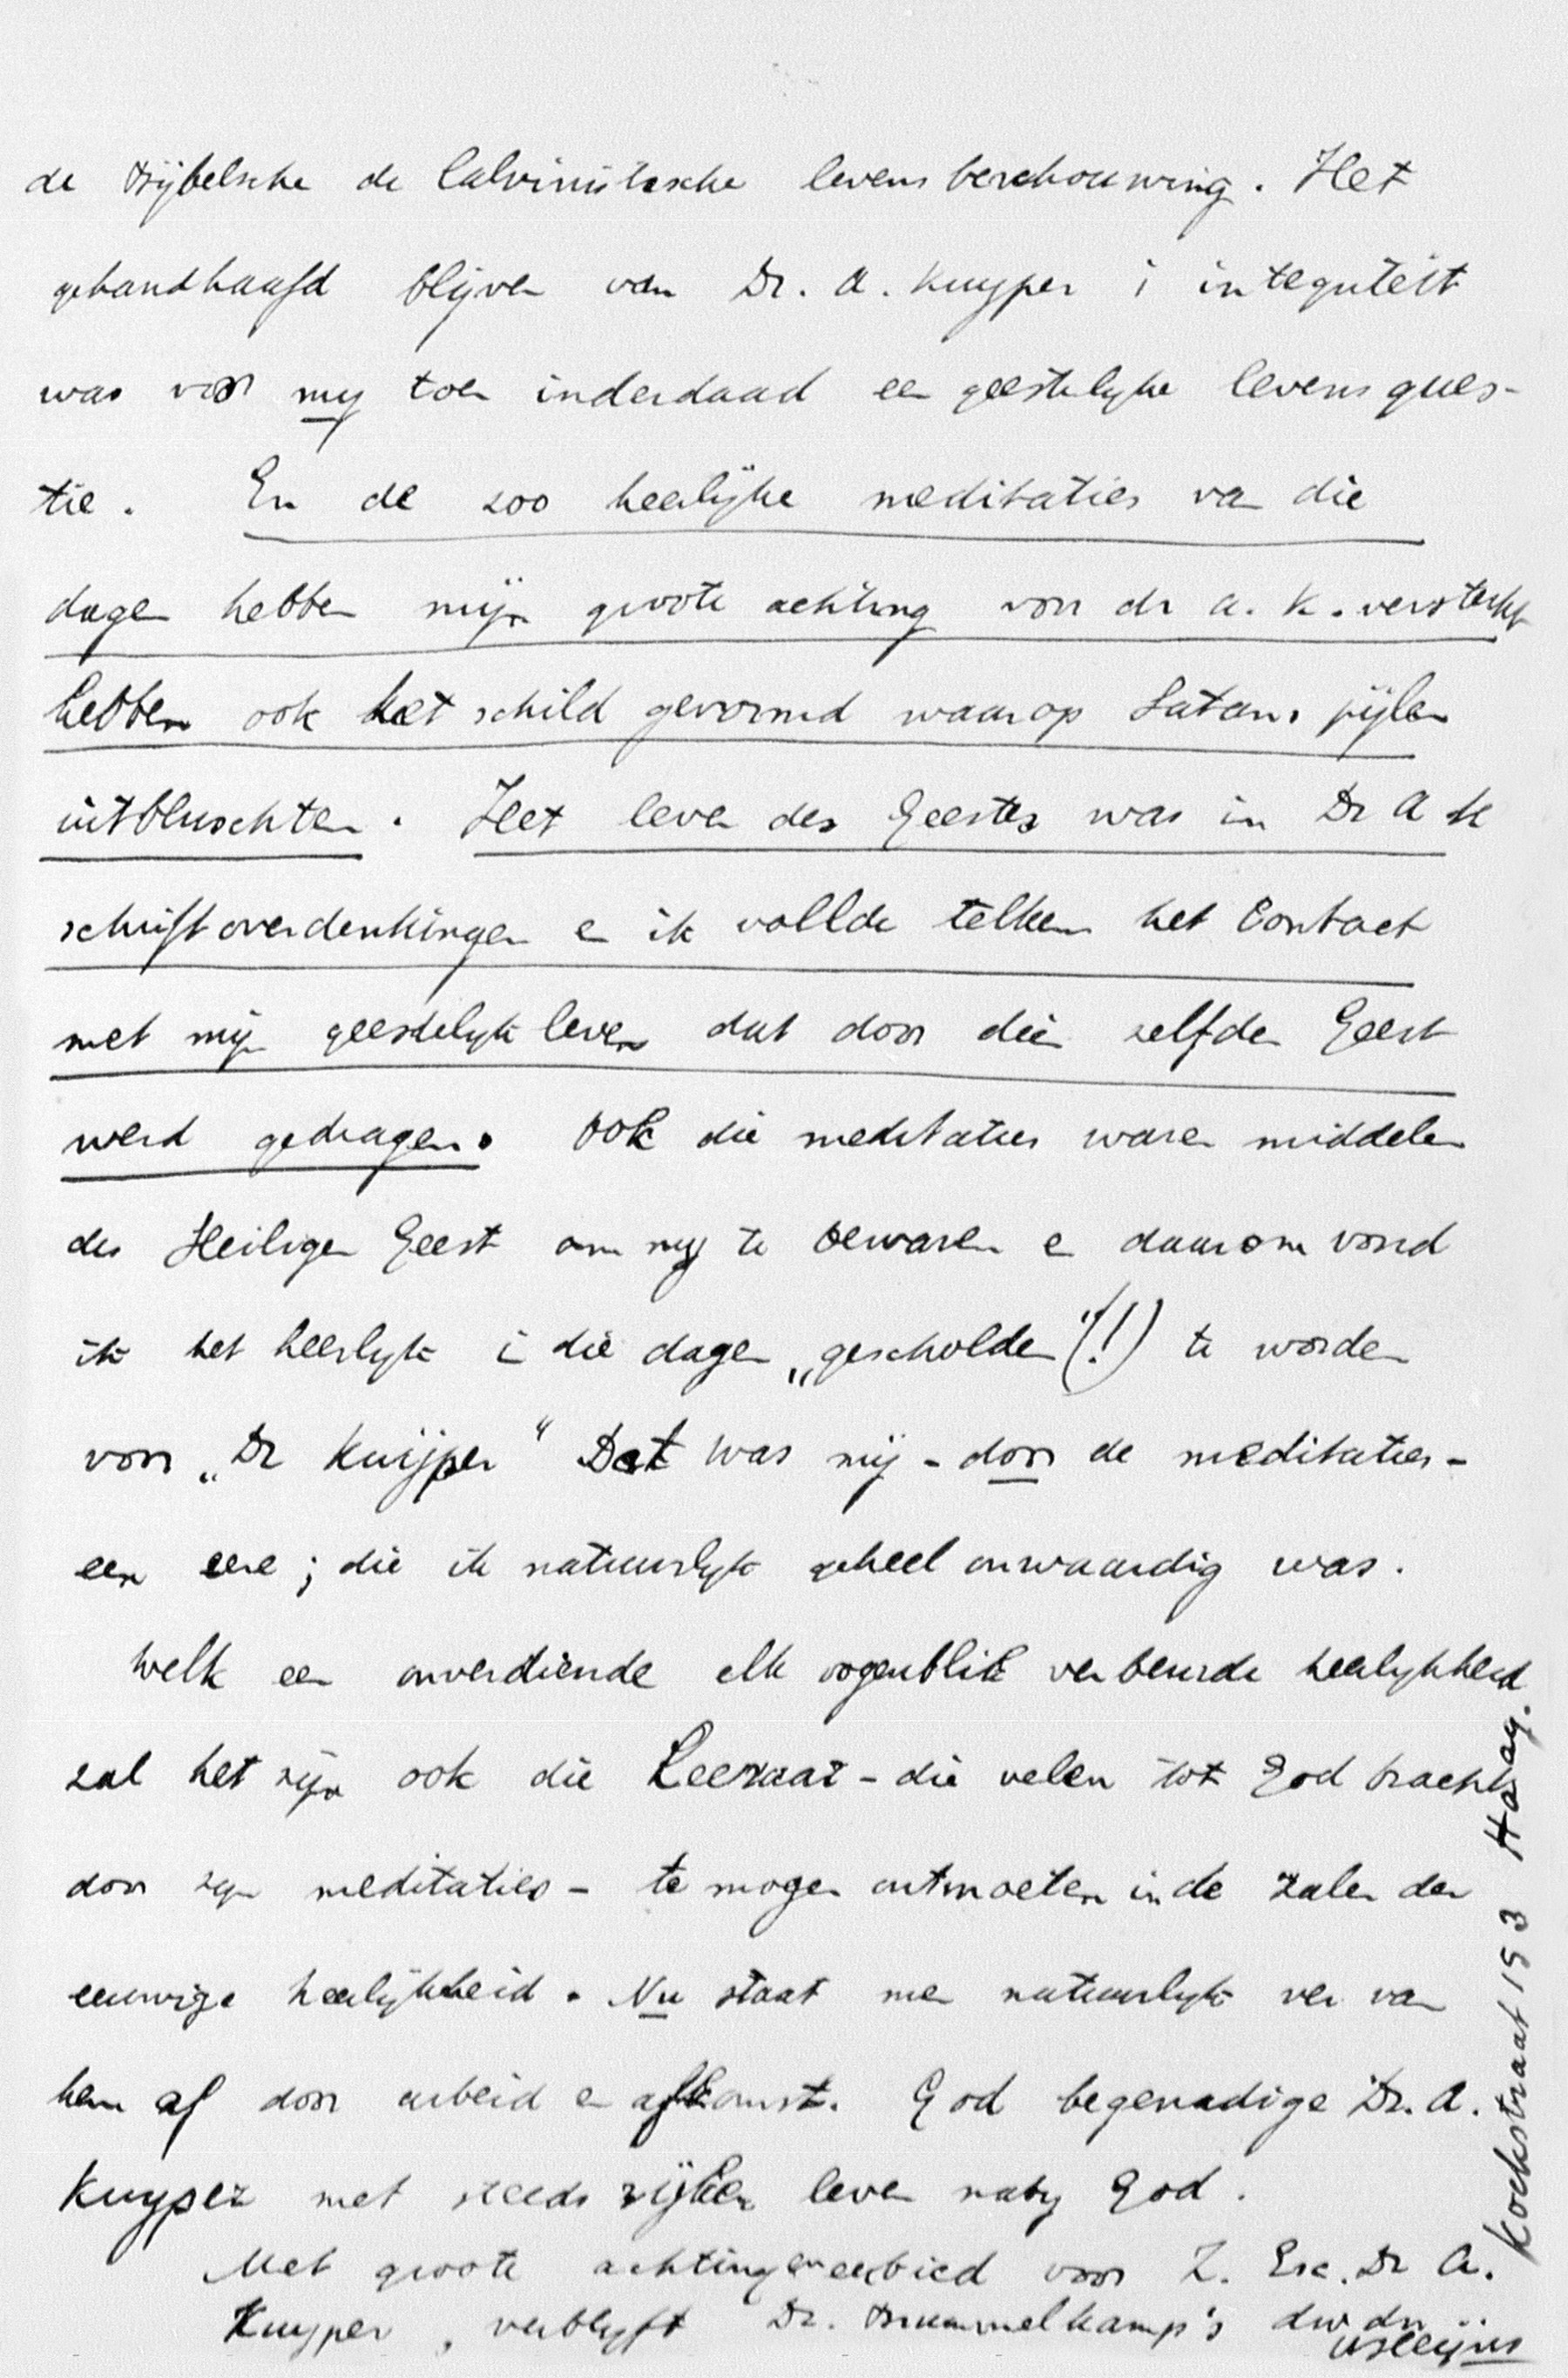 de Bijbelsche de Calvinistische levensbeschouwing. Het
gehandhaafd blijven van Dr. A. Kuyper i integriteit
was voor my toen inderdaad een geestelyke levensques-
tie. En de zoo heerlijke meditaties van die
dagen hebben mijn groote achting voor dr A. K. versterkt
hebben ook het schild gevormd waarop Satans pijlen
uitbluschten. Het leven des Geestes was in Dr A K
schriftoverdenkingen en ik voelde telken het contact
met mijn geestelyk leven dat door die zelfde Geest
werd gedragen. Ook die meditaties waren middelen
des Heiligen Geest om my te bewaren en daarom vond
ik het heerlyk i die dagen „gescholden"(!) te worden
voor „Dr Kuijper" Dat was mij - door de meditaties -
een eere; die ik natuurlyk geheel onwaardig was.
Welk een onverdiende elk oogenblik verbeurde heerlykheid
zal het zijn ook die Leeraar - die velen tot God bracht
door zyn meditaties - te mogen ontmoeten in de zalen der
eeuwige heerlijkheid. Nu staat men natuurlyk ver van
hem af door arbeid en afkomst. God begenadige Dr. A.
Kuyper met steeds rijker leven naby God.
Met groote achting en eerbied voor Z. Exc. Dr A.
Kuyper, verblyft Dr. Brummelkamp's dw dn
Kockstraat 193 Haag.